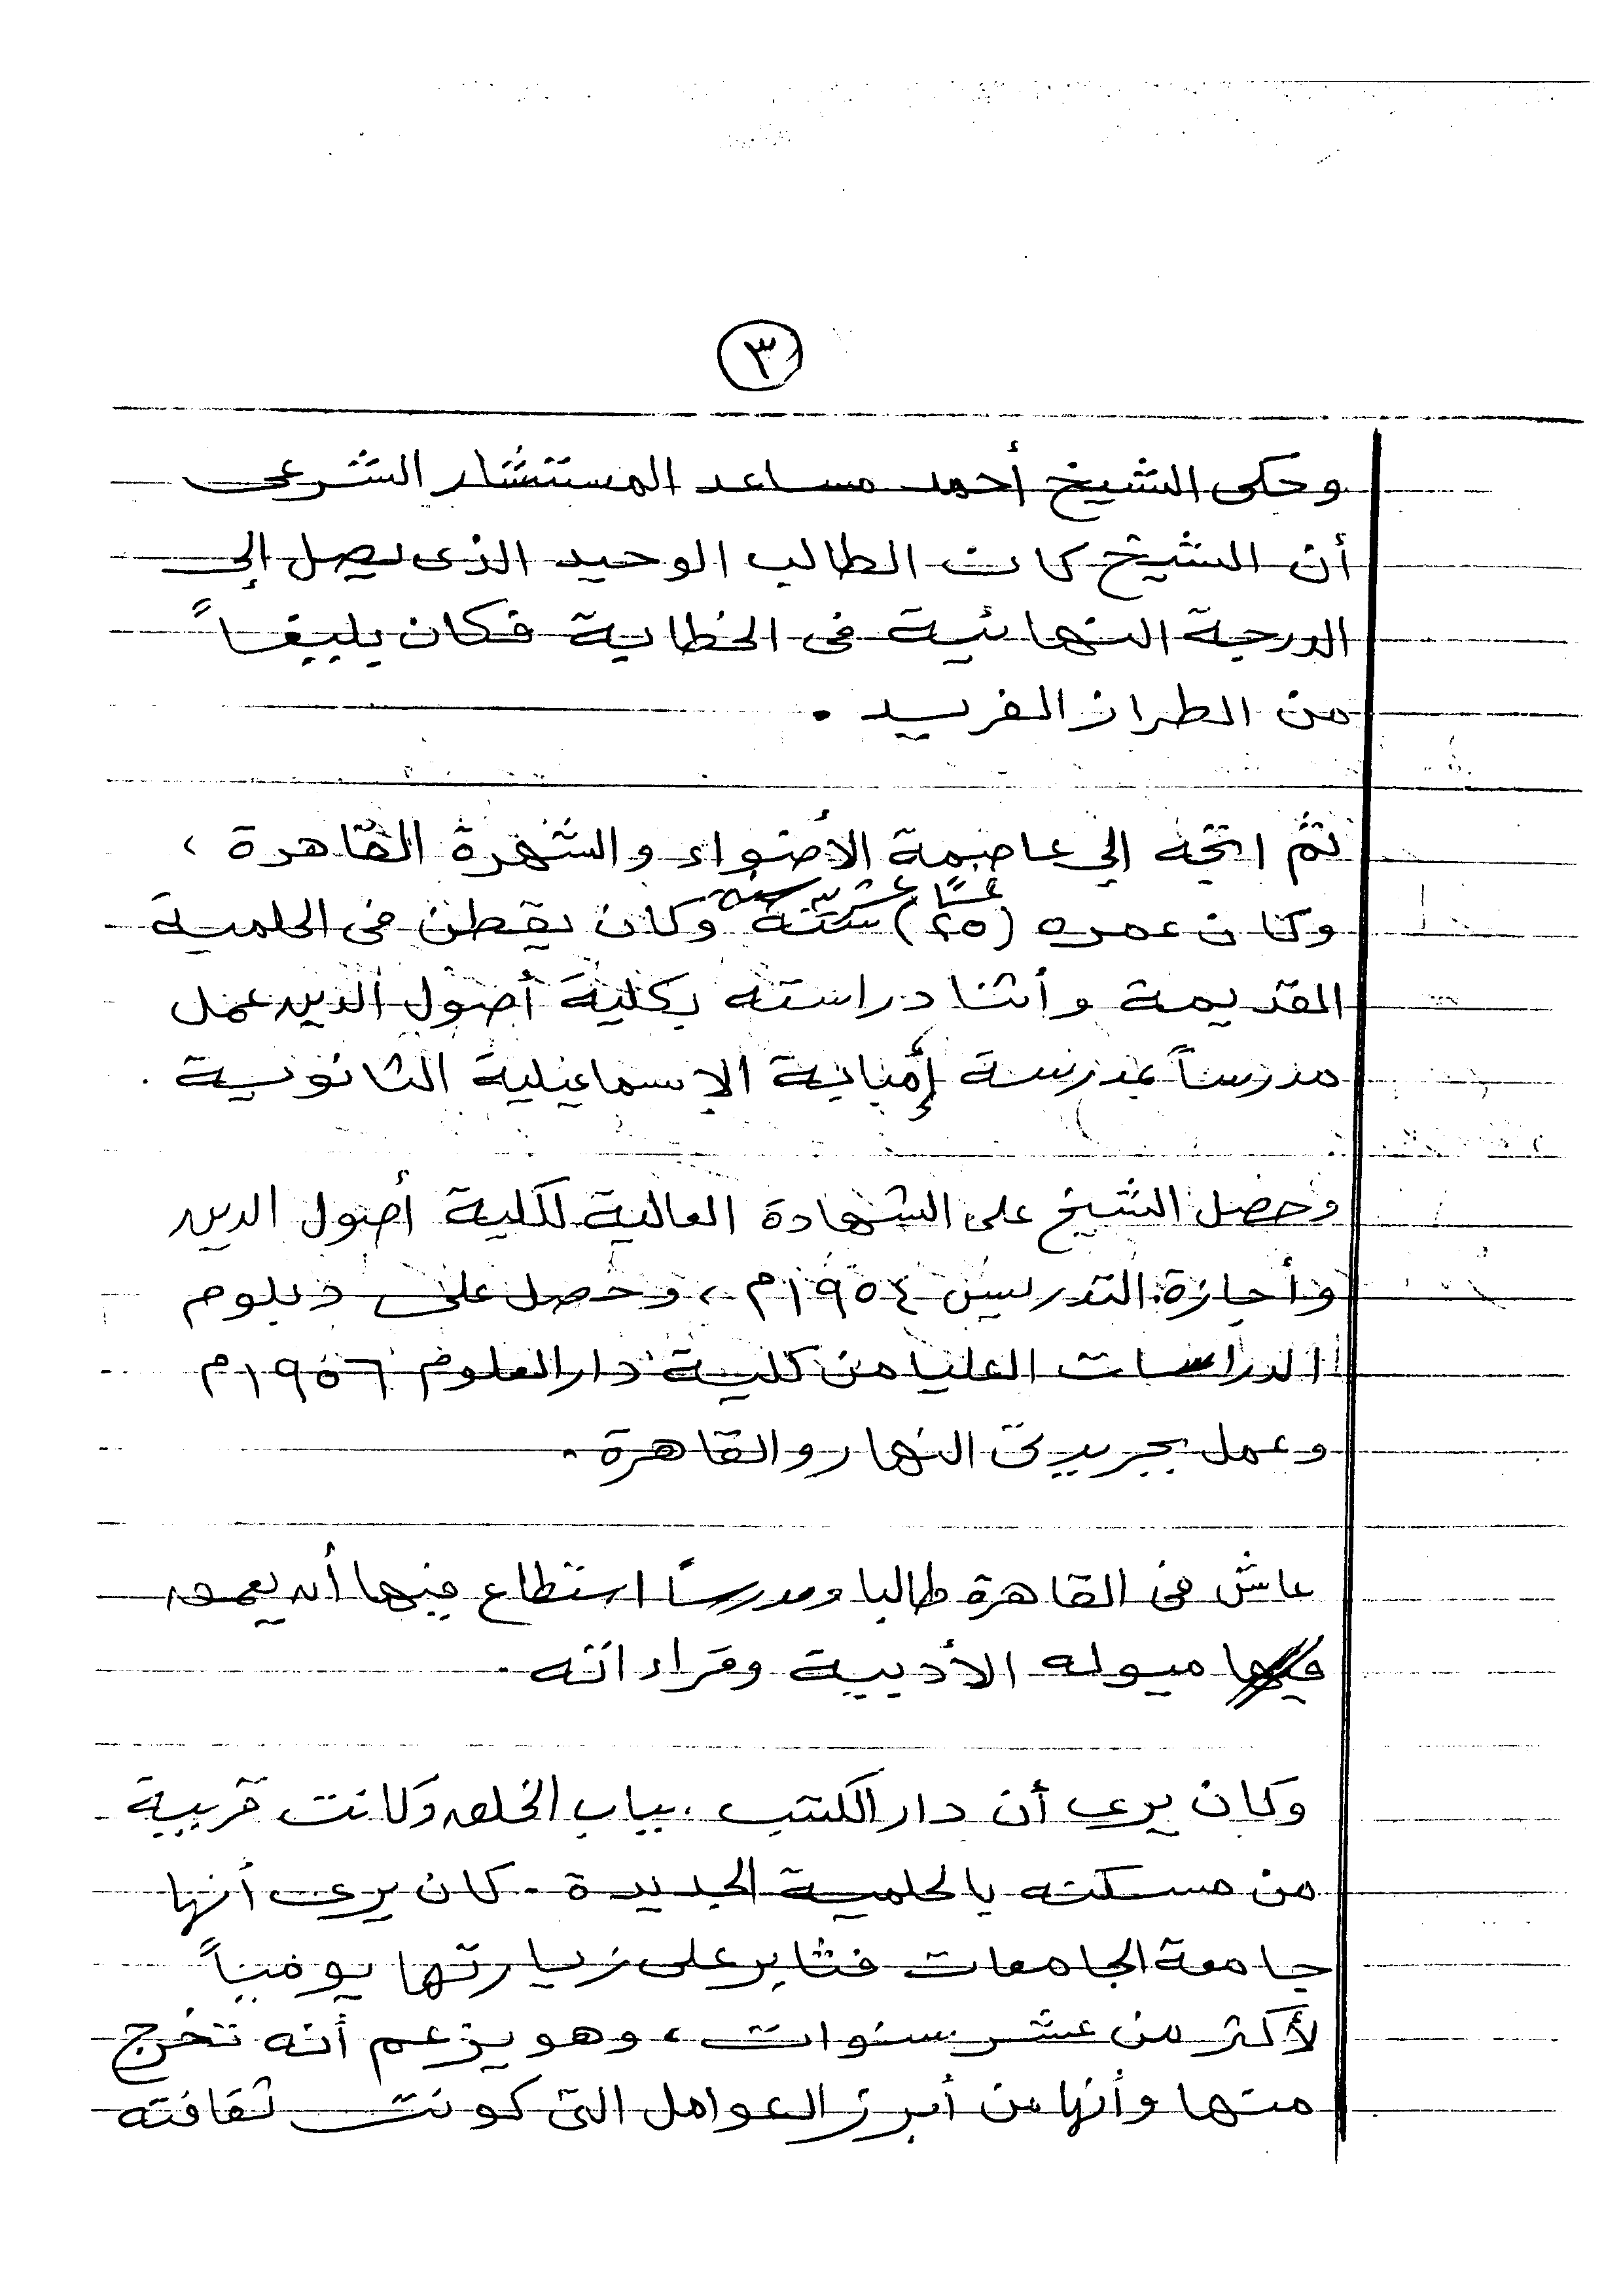 ٣
وحكى الشيخ أحمد مساعد المستشار الشرعى
أن الشيخ كان الطالب الوحيد الذى يصل إلى
الدرجة النهائية فى الخطابة فكان بليغاً
من الطراز الفريد .
ثم اتجه إلى عاصمة الأضواء والشهرة القاهرة ،
وكان عمره (٢٥) سنة وكان يقطن فى الحلمية
القديمة وأثنا دراسته بكلية أصول الدين عمل
مدرساً بمدرسة إمبابة الإسماعيلية الثانوية .
وحصل الشيخ على الشهادة العالية لكلية أصول الدين
وأجازة التدريس ١٩٥٤م ، وحصل على دبلوم
الدراسات العليا من كلية دار العلوم ١٩٥٦م
وعمل بجريدتى النهار والقاهرة .
عاش فى القاهرة طالبا ومدرساً استطاع فيها أن يعمق
فيها ميوله الأدبية وقراءاته .
وكان يرى أن دار الكتب بباب الخلق وكانت قريبة
من مسكنه بالحلمية الجديدة . كان يرى أنها
جامعة الجامعات فثابر على زيارتها يومياً
لأكثر من عشر سنوات ، وهو يزعم أنه تخرج
منها وأنها من أبرز العوامل التى كونت ثقافته